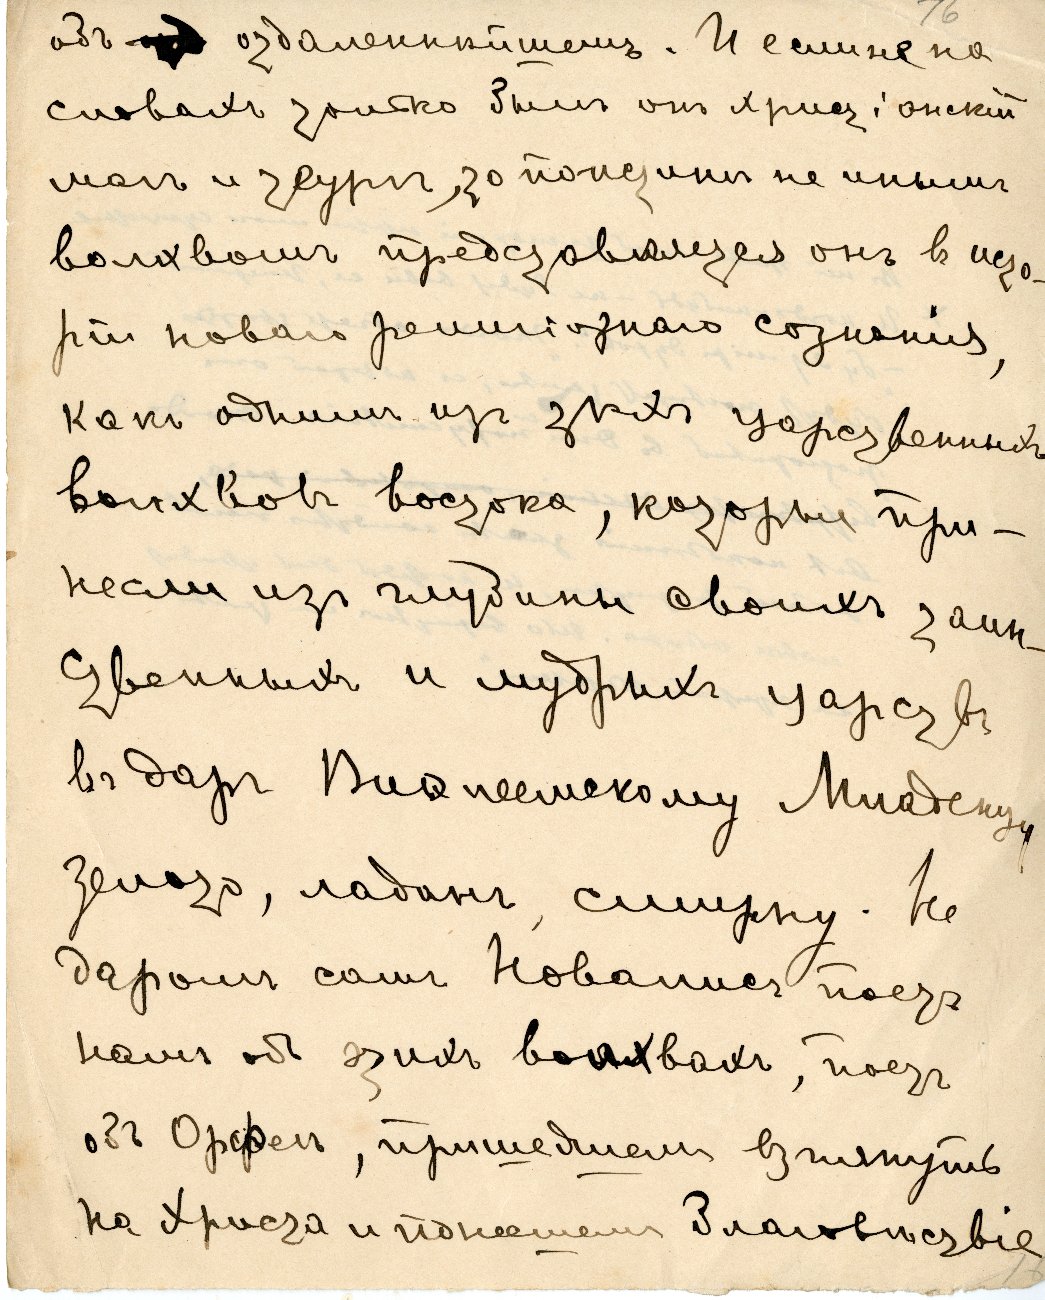 76
объ отдаленнѣйшемъ. И если не на
словахъ только былъ онъ христiонскiй
магъ и теургъ, то поистинѣ не инымъ
волхвомъ представляется онъ в исто-
рiи новаго религiознаго сознанiя,
какъ однимъ изъ тѣхъ царственныхъ
волхвовъ востока, которые при-
несли изъ глубины своихъ таин-
ственныхъ и мудрыхъ царствъ
въ даръ Виѳлеемскому Младенцу
золото, ладанъ, смирну. Не
даромъ самъ Новалисъ поетъ
намъ объ этихъ волхвахъ, поетъ
объ Орфеѣ, пришедшемъ взглянуть
на Христа и понесшемъ Благовѣствiе